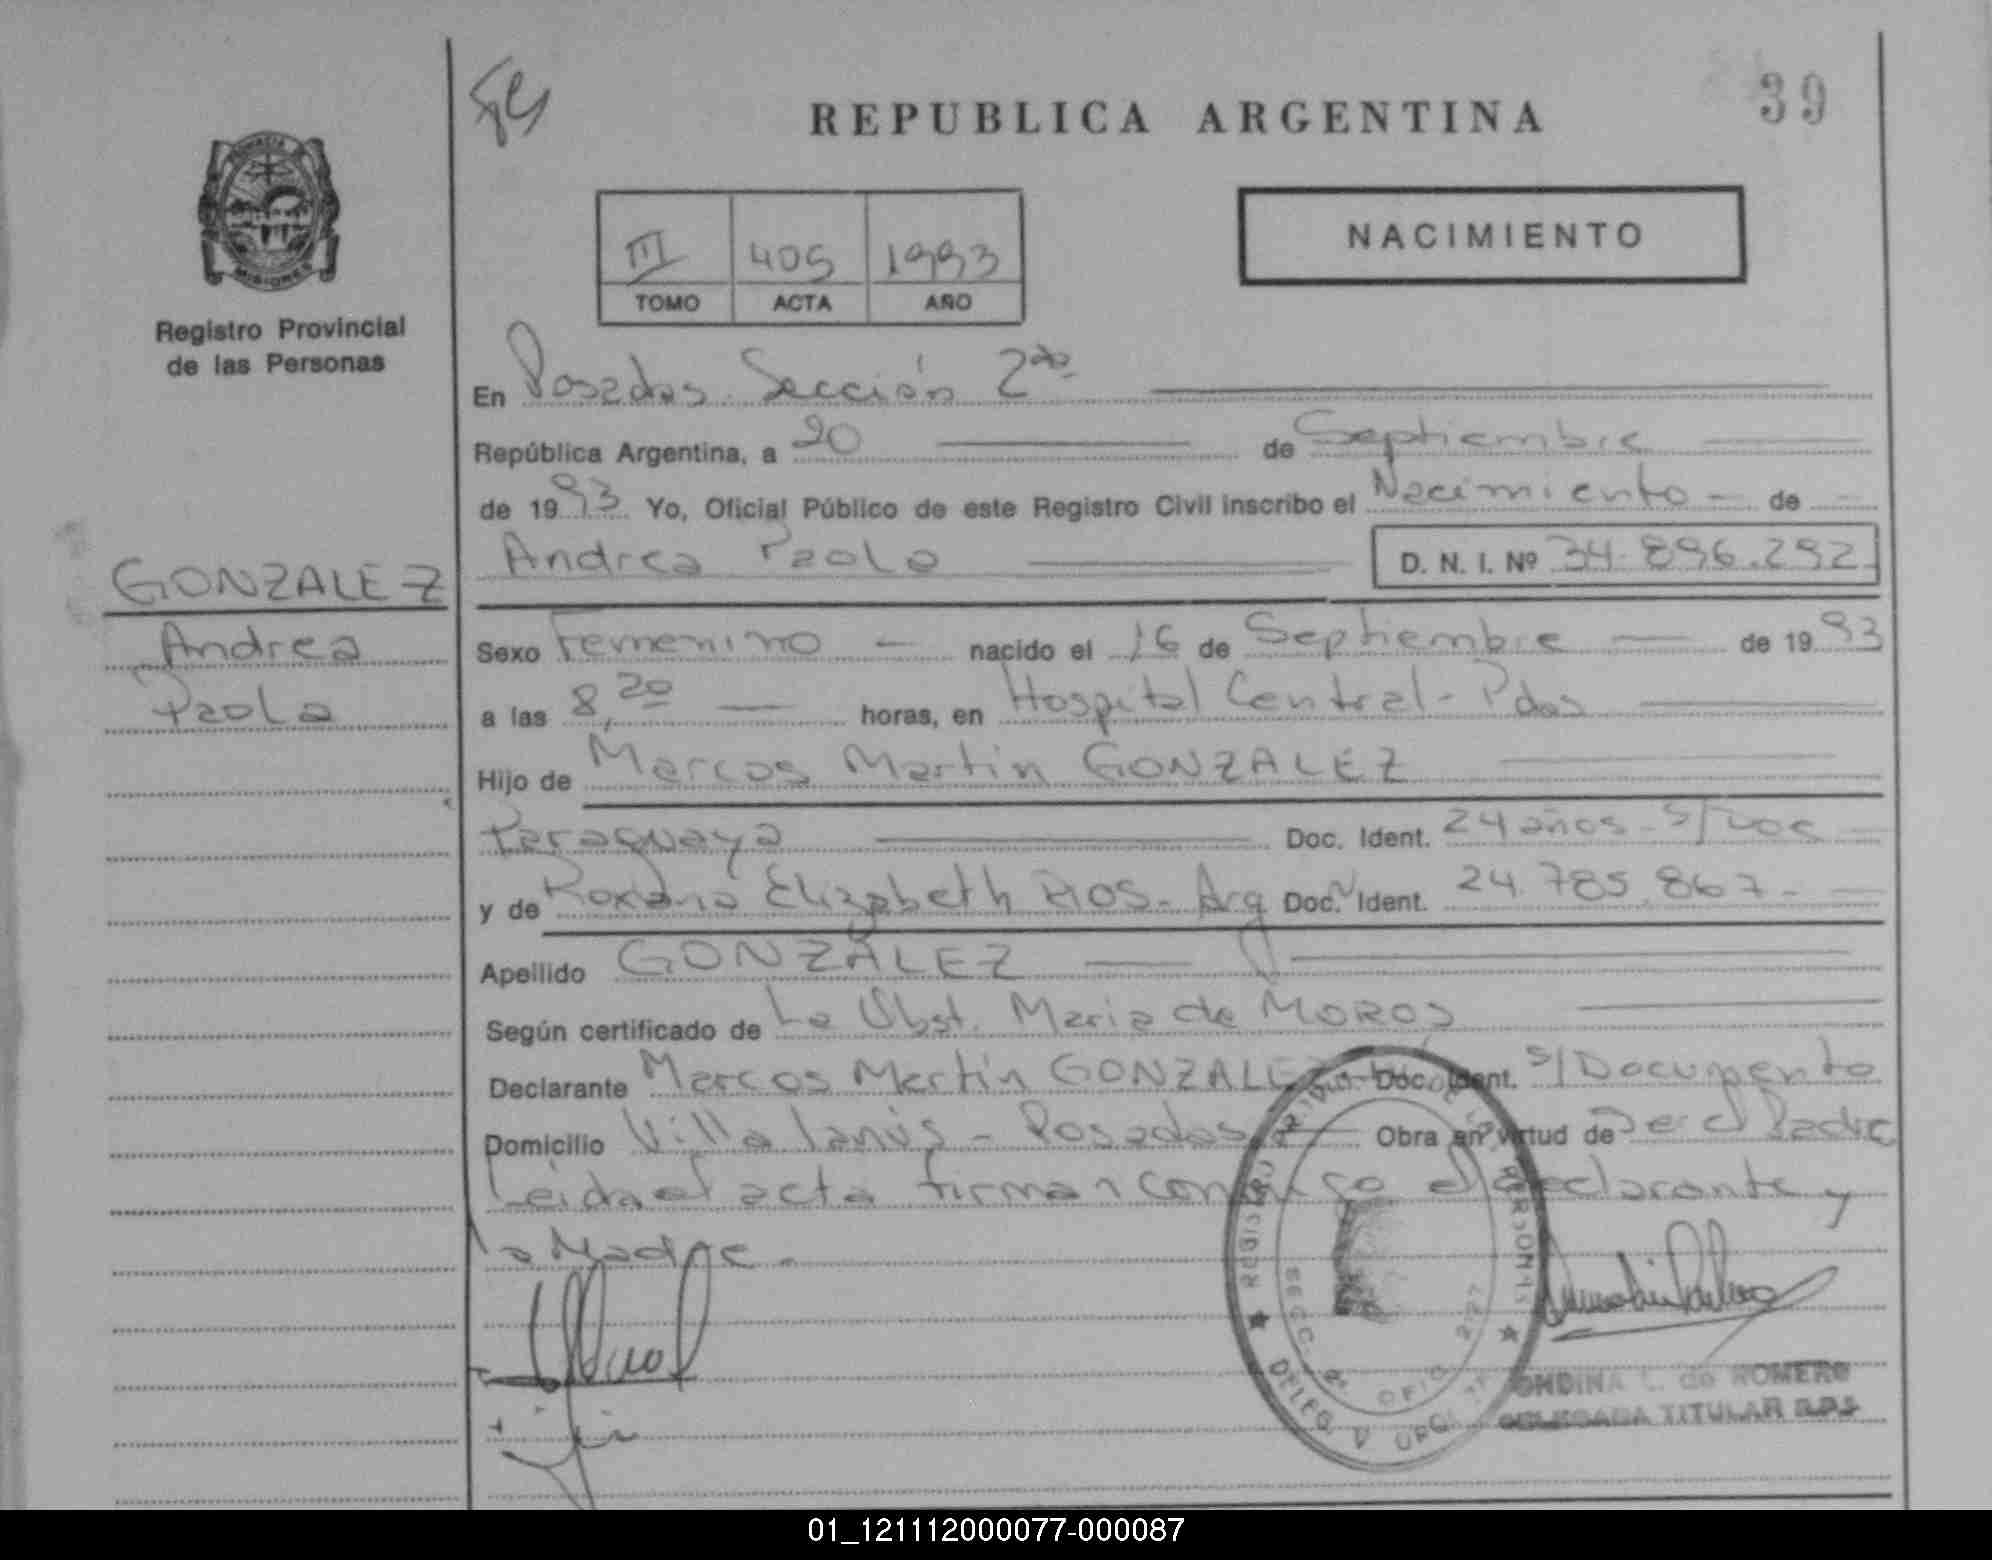 REPUBLICA ARGENTINA
39
MISIONES
Registro Provincial
de las Personas
III 405 1993
TOMO ACTA AÑO
NACIMIENTO
En Posadas Sección 2da
República Argentina, a 20 de Septiembre
de 1993 Yo, Oficial Público de este Registro Civil inscribo el Nacimiento - de -
Andrea Paola D. N. I. Nº 34.896.292
GONZALEZ
Andrea
Paola
Sexo Femenino - nacido el 16 de Septiembre - de 1993
a las 8,20 - horas, en Hospital Central - Pdas
Hijo de Marcos Martin GONZALEZ
Paraguaya Doc. Ident. 24 años - s/Doc
y de Roxana Elizabeth RIOS - Arg Doc. Ident. 24.785.867 -
Apellido GONZALEZ
Según certificado de La Obst. Maria de MOROS
Declarante Marcos Martin GONZALEZ Doc. Ident. s/Documento
Domicilio Villa Lanús - Posadas - Obra en virtud de Ser el Padre
Leida el acta firman conmigo el declarante y
la Madre -
ONDINA L. de ROMERO
DELEGADA TITULAR R.P.S
01_121112000077-000087